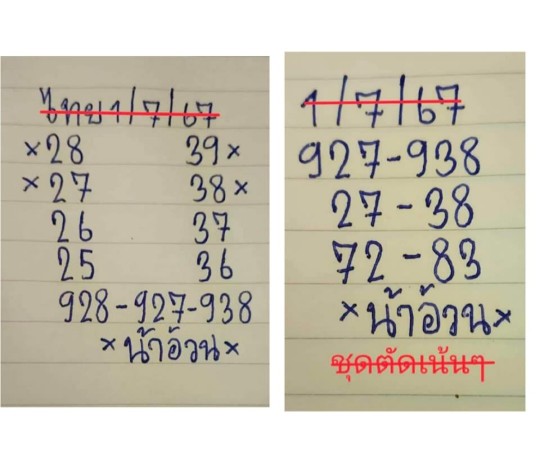 ไทย 1/7/67
×28 39×
×27 38×
26 37
25 36
928-927-938
×น้าอ้วน×
1/7/67
927-938
27-38
72-83
×น้าอ้วน×
ชุดตัดเน้นๆ